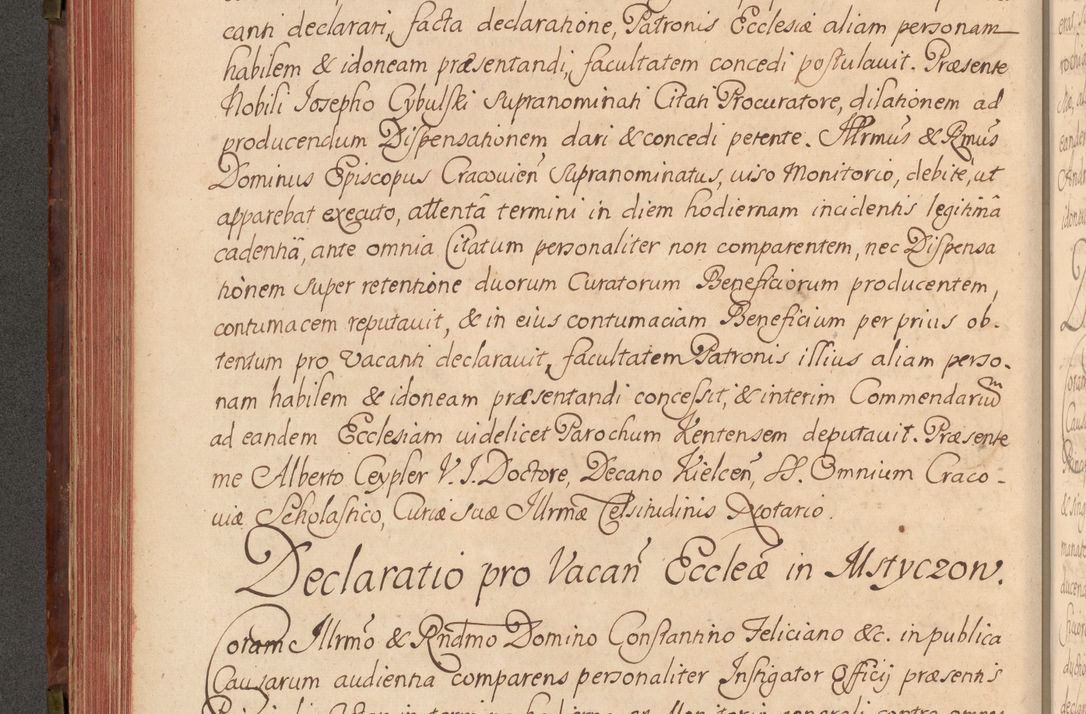 canti declarari, facta declaratione, Patronis Ecclesiæ aliam personam
habilem & idoneam præsentandi, facultatem concedi postulavit. Præsente
Nobili Josepho Cybulski supranominati Citati Procuratore, dilationem ad
producendum Dispensationem dari & concedi petente. Illrmus & Rmus
Dominus Episcopus Cracovien supranominatus, viso Monitorio, debite, ut
apparebat executo, attentâ termini in diem hodiernam incidentis legitimâ
cadentiâ, ante omnia Citatum personaliter non comparentem, nec Dispensa
tionem super retentione duorum Curatorum Beneficiorum producentem,
contumacem reputavit, & in eius contumaciam Beneficium per prius ob-
tentum pro vacanti declaravit, facultatem Patronis illius aliam perso-
nam habilem & idoneam præsentandi concessit, & interim Commendariũ
ad eandem Ecclesiam videlicet Parochum Kentensem deputavit. Præsente
me Alberto Ceypler V. J. Doctore, Decano Kielcen, SS. Omnium Craco-
viæ Scholastico, Curiæ suæ Illrmæ Celsitudinis Notario.
Declaratio pro Vacan Eccleæ in Mstyczow.
Coram Illrmo & Rndmo Domino Constantino Feliciano &c. in publica
Causarum audientia comparens personaliter Instigator Officij præsentis